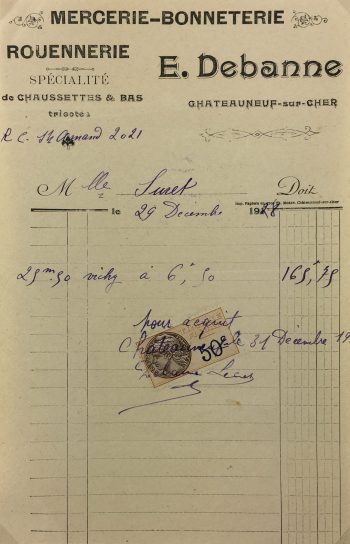 MERCERIE-BONNETERIE
ROUENNERIE
SPÉCIALITÉ
de CHAUSSETTES & BAS
tricotés
E. Debanne
CHATEAUNEUF-sur-CHER
R C. St Amand 2021
Mlle Suret Doit
le 29 Décembre 1928
25m50 vichy à 6f,50 165f,75
pour acquit
le 31 Décembre 19
50c